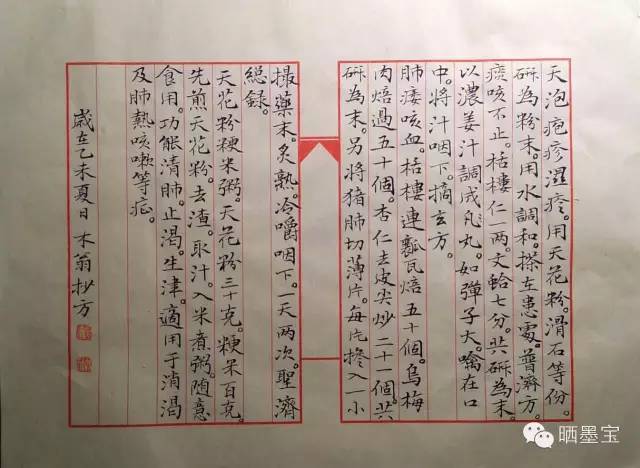 天泡疱疹濕疹。用天花粉。滑石等份。
研為粉末。用水調和。搽在患處。普濟方。
痰咳不止。栝樓仁一兩。文蛤七分。共研為末。
以濃姜汁調成丸。如彈子大。噙在口
中。將汁咽下。摘玄方。
肺痿咳血。栝樓連瓤瓦焙五十個。烏梅
肉焙過五十個。杏仁去皮尖炒二十一個。共
研為末。另將猪肺切薄片。每片摻入一小
撮藥末。炙熟。冷嚼咽下。一天兩次。聖濟
総録。
天花粉粳米粥。天花粉三十克。粳米百克。
先煎天花粉。去渣。取汁。入米煮粥。随意
食用。功能清肺。止渴生津。適用于消渴
及肺熱咳嗽等症。
歲在乙未夏日木翁抄方
晒墨宝